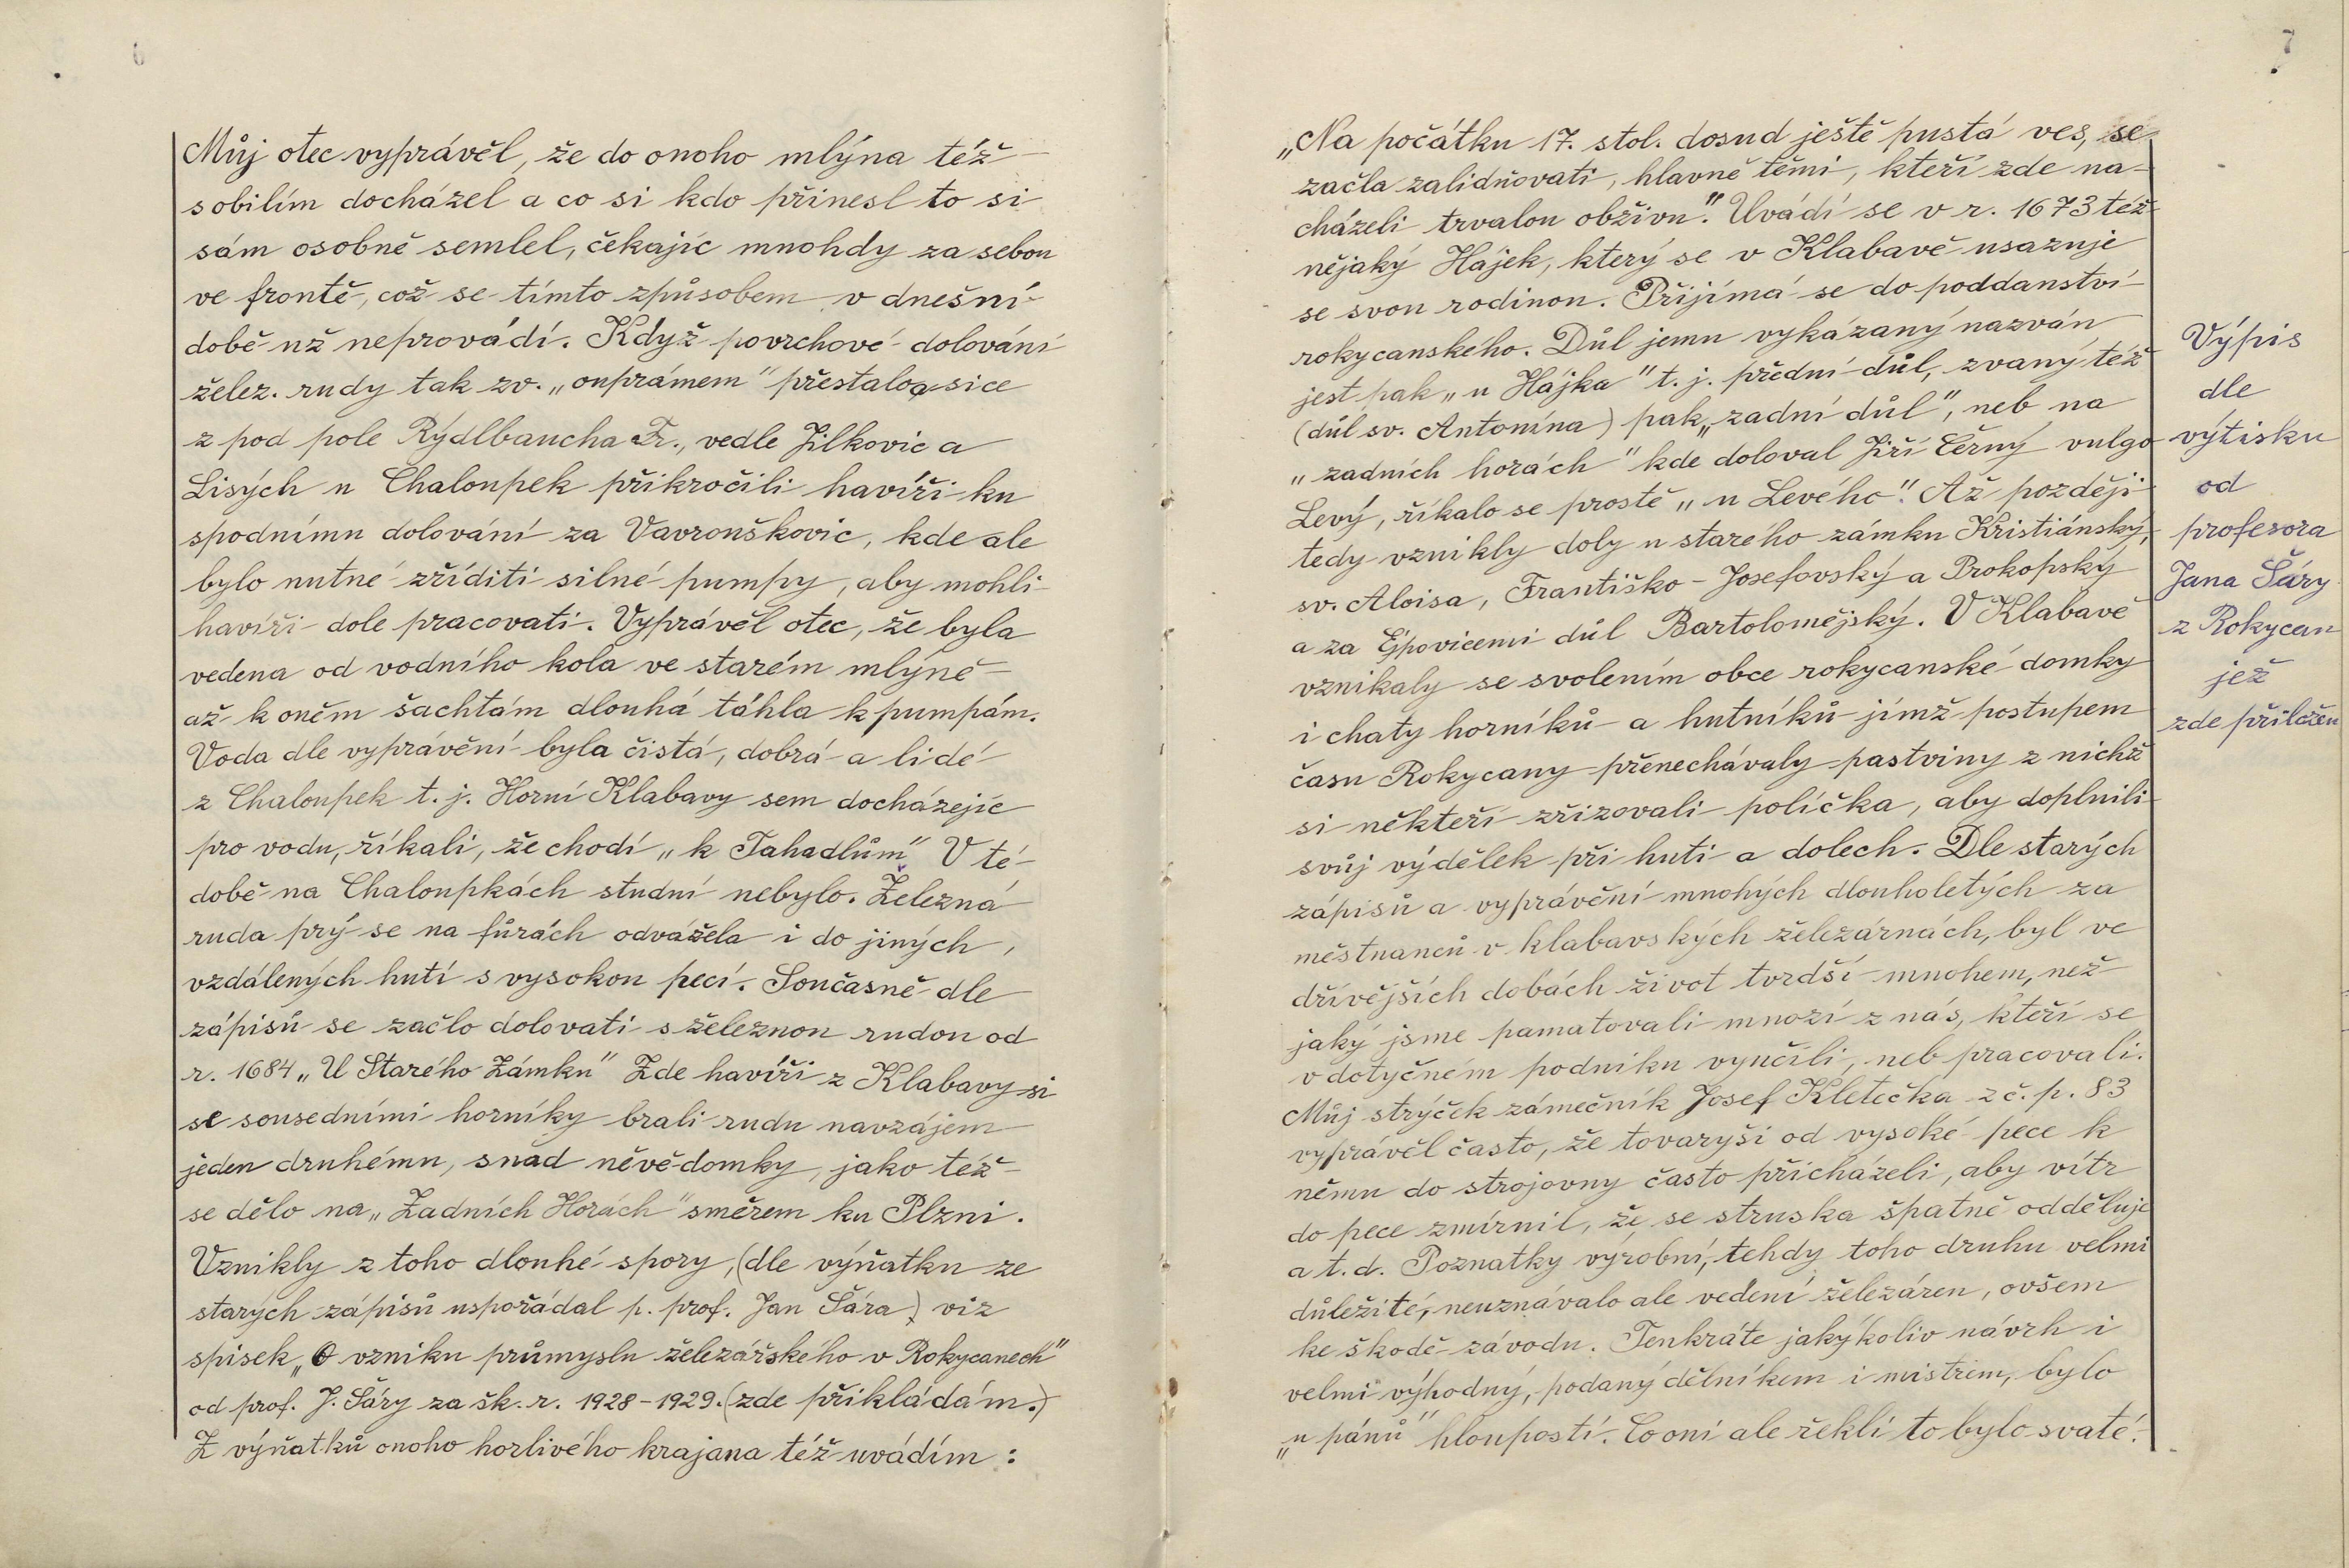 6
Můj otec vyprávěl, že do onoho mlýna též
s obilím docházel a co si kdo přinesl to si
sám osobně semlel, čekajíc mnohdy za sebou
ve frontě, což se tímto způsobem v dnešní
době už neprovádí. Když povrchové dolování
želez. rudy tak zv. „ouprámem" přestalo, sice
z pod pole Rýdlbaucha Fr., vedle Jílkovic a
Lisých u Chaloupek přikročili havíři ku
spodnímu dolování za Vavrouškovic, kde ale
bylo nutné zříditi silné pumpy, aby mohli
havíři dole pracovati. Vyprávěl otec, že byla
vedena od vodního kola ve starém mlýně
až k oněm šachtám dlouhá táhla k pumpám.
Voda dle vyprávění byla čistá, dobrá a lidé
z Chaloupek t. j. Horní Klabavy sem docházejíc
pro vodu, říkali, že chodí „k Tahadlům" V té
době na Chaloupkách studní nebylo. Železná
ruda prý se na fůrách odvážela i do jiných,
vzdálených hutí s vysokou pecí. Současně dle
zápisů se začlo dolovati s železnou rudou od
r. 1684 „U Starého Zámku" Zde havíři z Klabavy si
se sousedními horníky brali rudu navzájem
jeden druhému, snad něvědomky, jako též
se dělo na „Zadních Horách" směrem ku Plzni.
Vznikly z toho dlouhé spory, (dle výňatku ze
starých zápisů uspořádal p. prof. Jan Šára) viz
spisek „O vzniku průmyslu železářského v Rokycanech"
od prof. J. Šáry za šk. r. 1928-1929. (zde přikládám.)
Z výňatků onoho horlivého krajana též uvádím :
7
„Na počátku 17. stol. dosud ještě pustá ves, se
začla zalidňovati, hlavně těmi, kteří zde na-
cházeli trvalou obživu". Uvádí se v r. 1673 též
nějaký Hájek, který se v Klabavě usazuje
se svou rodinou. Přijímá se do poddanství
rokycanského. Důl jemu vykázaný nazván
jest pak „u Hájka" t. j. přední důl, zvaný též
(důl sv. Antonína) pak „zadní důl", neb na
„zadních horách" kde doloval Jiří Černý vulgo
Levý, říkalo se prostě „u Levého". Až později
tedy vznikly doly u starého zámku Kristiánský,
sv. Aloisa, Františko-Josefovský a Prokopský
a za Ejpovicemi důl Bartolomějský. V Klabavě
vznikaly se svolením obce rokycanské domky
i chaty horníků a hutníků jímž postupem
času Rokycany přenechávaly pastviny z nichž
si někteří zřizovali políčka, aby doplnili
svůj výdělek při huti a dolech. Dle starých
zápisů a vyprávění mnohých dlouholetých za
městnanců v klabavských železárnách, byl ve
dřívějších dobách život tvrdší mnohem, než
jaký jsme pamatovali mnozí z nás, kteří se
v dotyčném podniku vyučili, neb pracovali.
Můj strýček zámečník Josef Kletečka z č. p. 83
vyprávěl často, že tovaryši od vysoké pece k
němu do strojovny často přicházeli, aby vítr
do pece zmírnil, že se struska špatně odděluje
a t. d. Poznatky výrobní, tehdy toho druhu velmi
důležité, neuznávalo ale vedení železáren, ovšem
ke škodě závodu. Tenkráte jakýkoliv návrh i
velmi výhodný, podaný dělníkem i mistrem, bylo
„u pánů" hloupostí. Co oni ale řekli to bylo svaté.
Výpis
dle
výtisku
od
profesora
Jana Šáry
z Rokycan
jež
zde přiložen